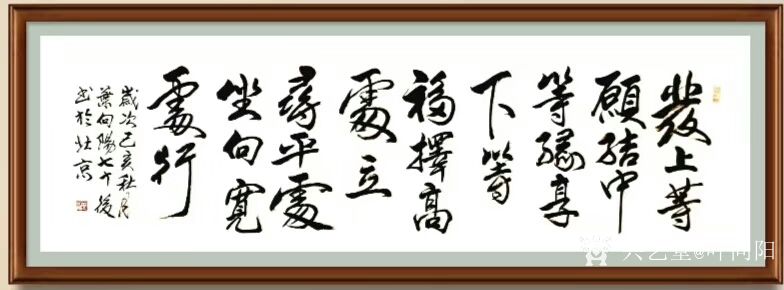 發上等
願結中
等緣享
下等
福擇高
處立
尋平處
坐向寬
處行
歲次己亥秋月
葉向陽七十後
书於北京
艺堂@叶向阳